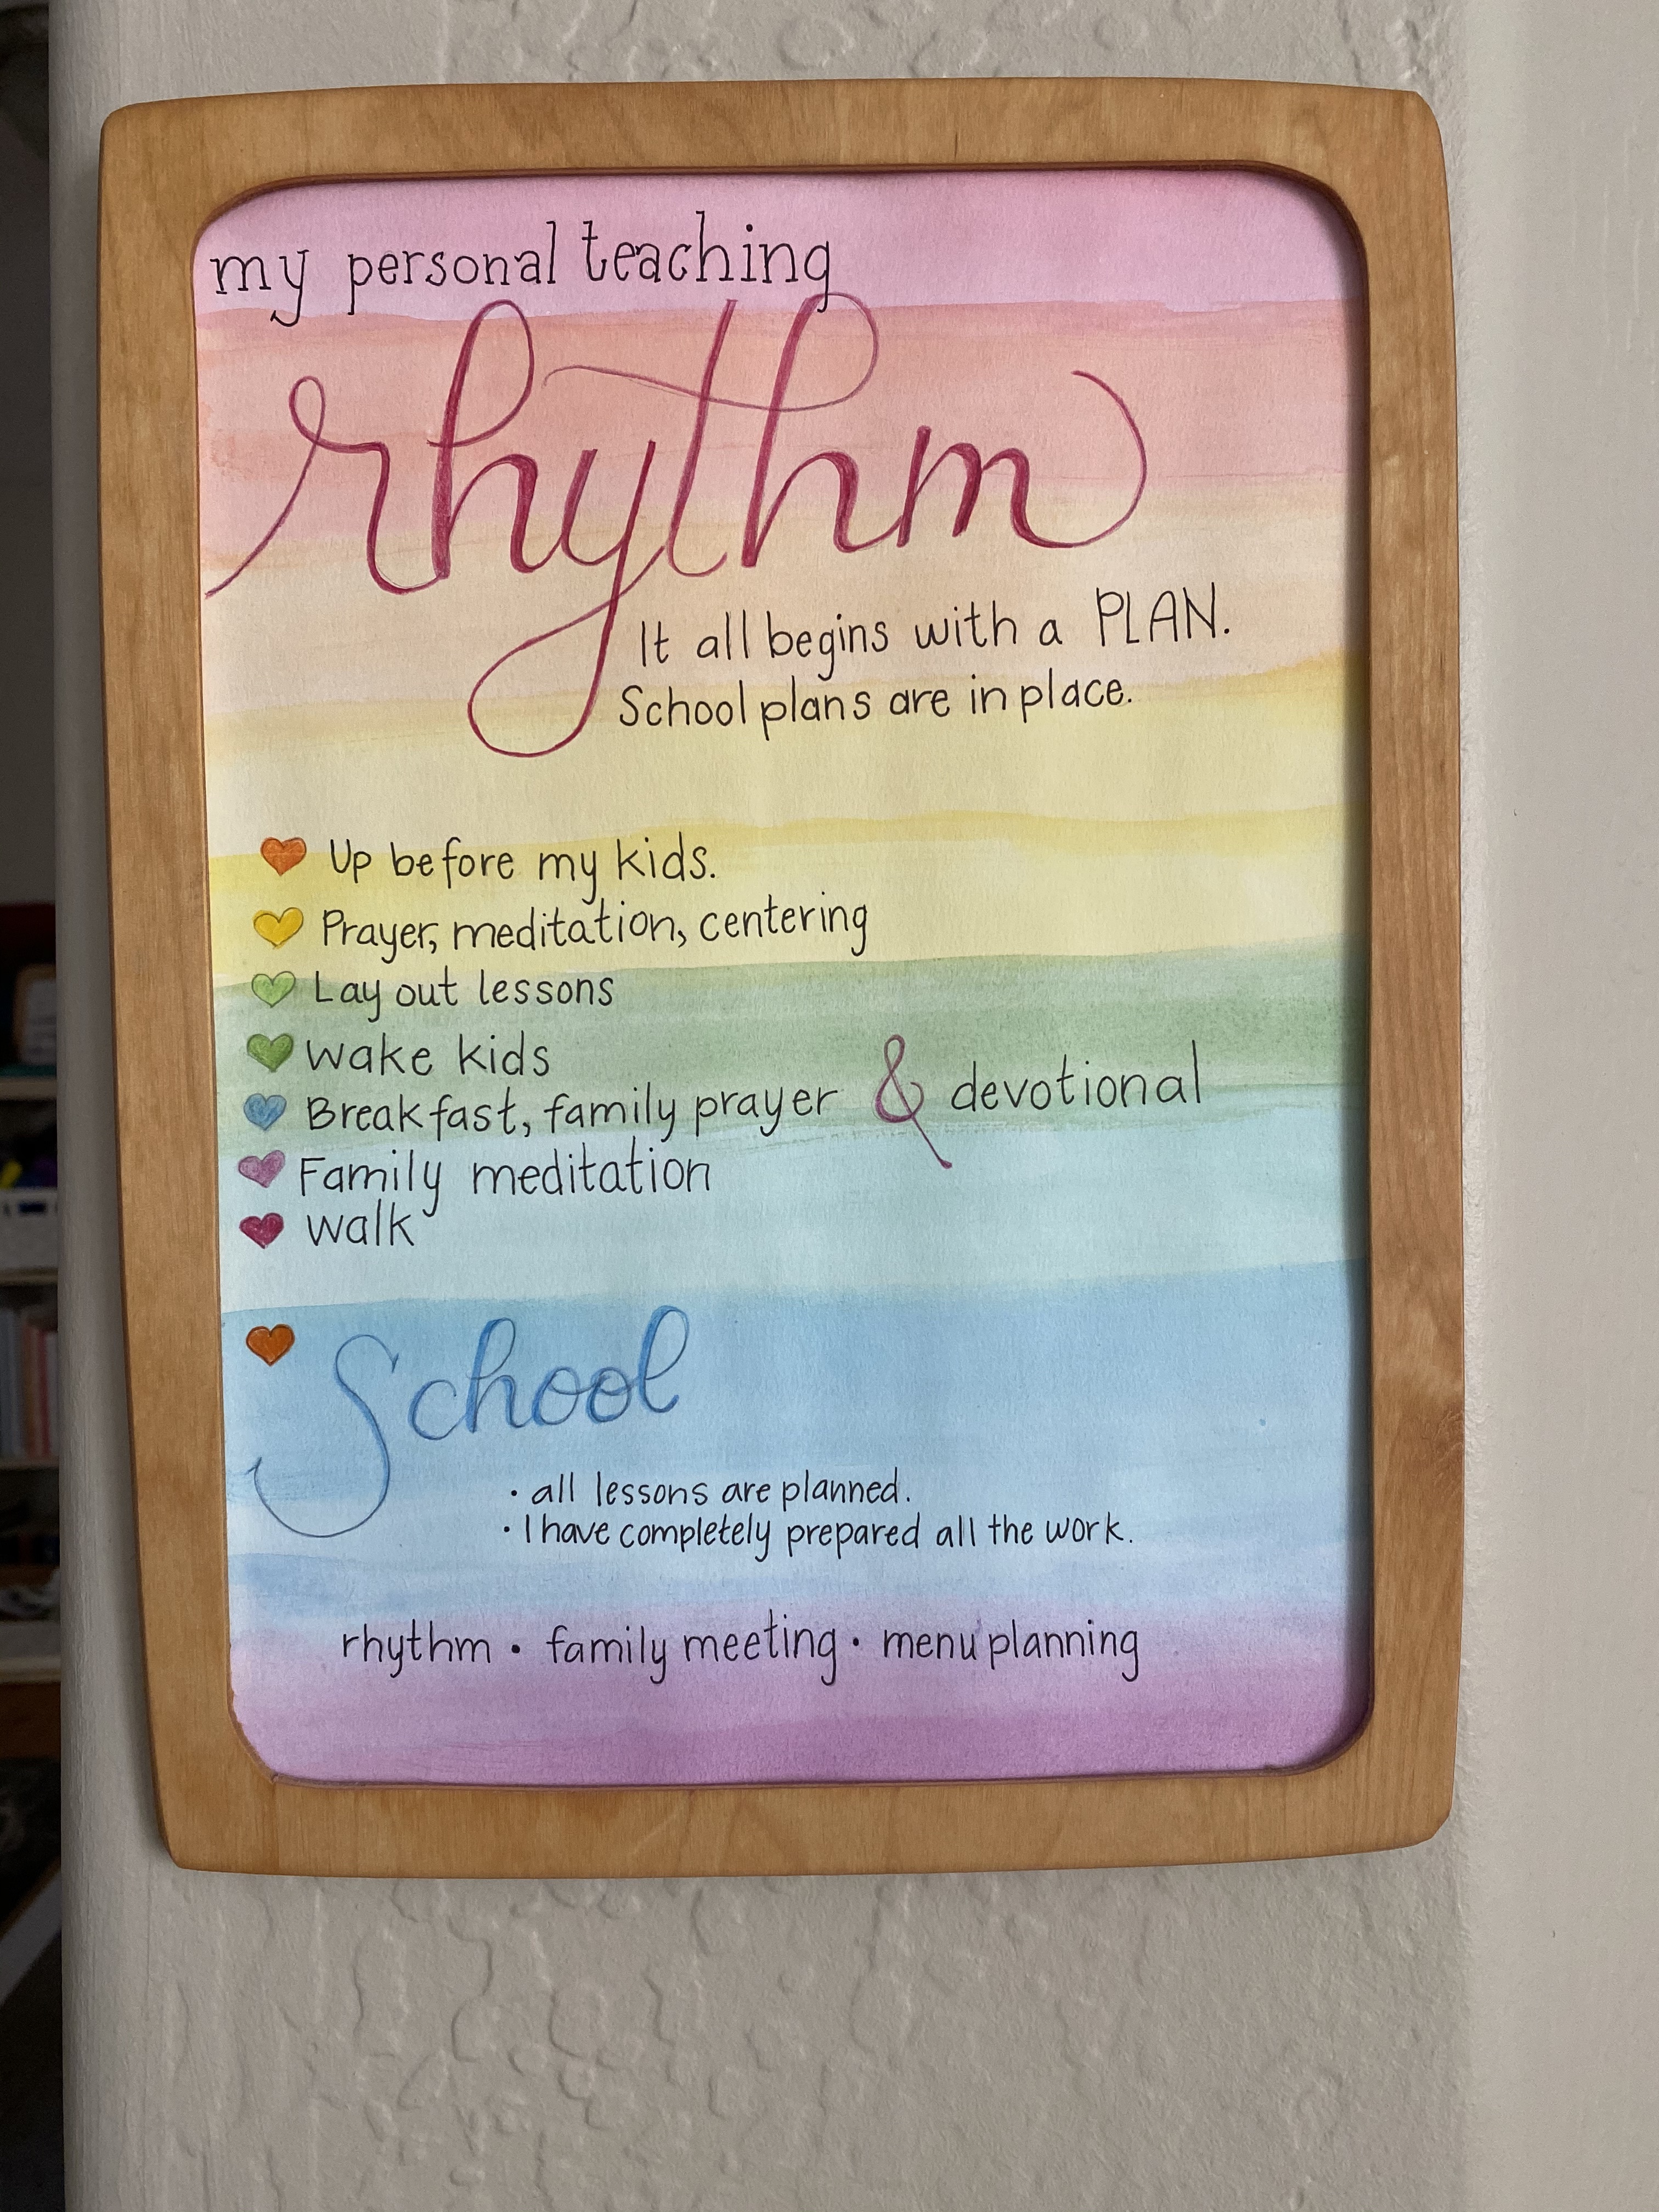 my personal teaching
rhythm
It all begins with a PLAN.
School plans are in place.
Up before my kids.
Prayer, meditation, centering
Lay out lessons
wake kids
Breakfast, family prayer & devotional
Family meditation
walk
School
· all lessons are planned.
· I have completely prepared all the work.
rhythm · family meeting · menu planning